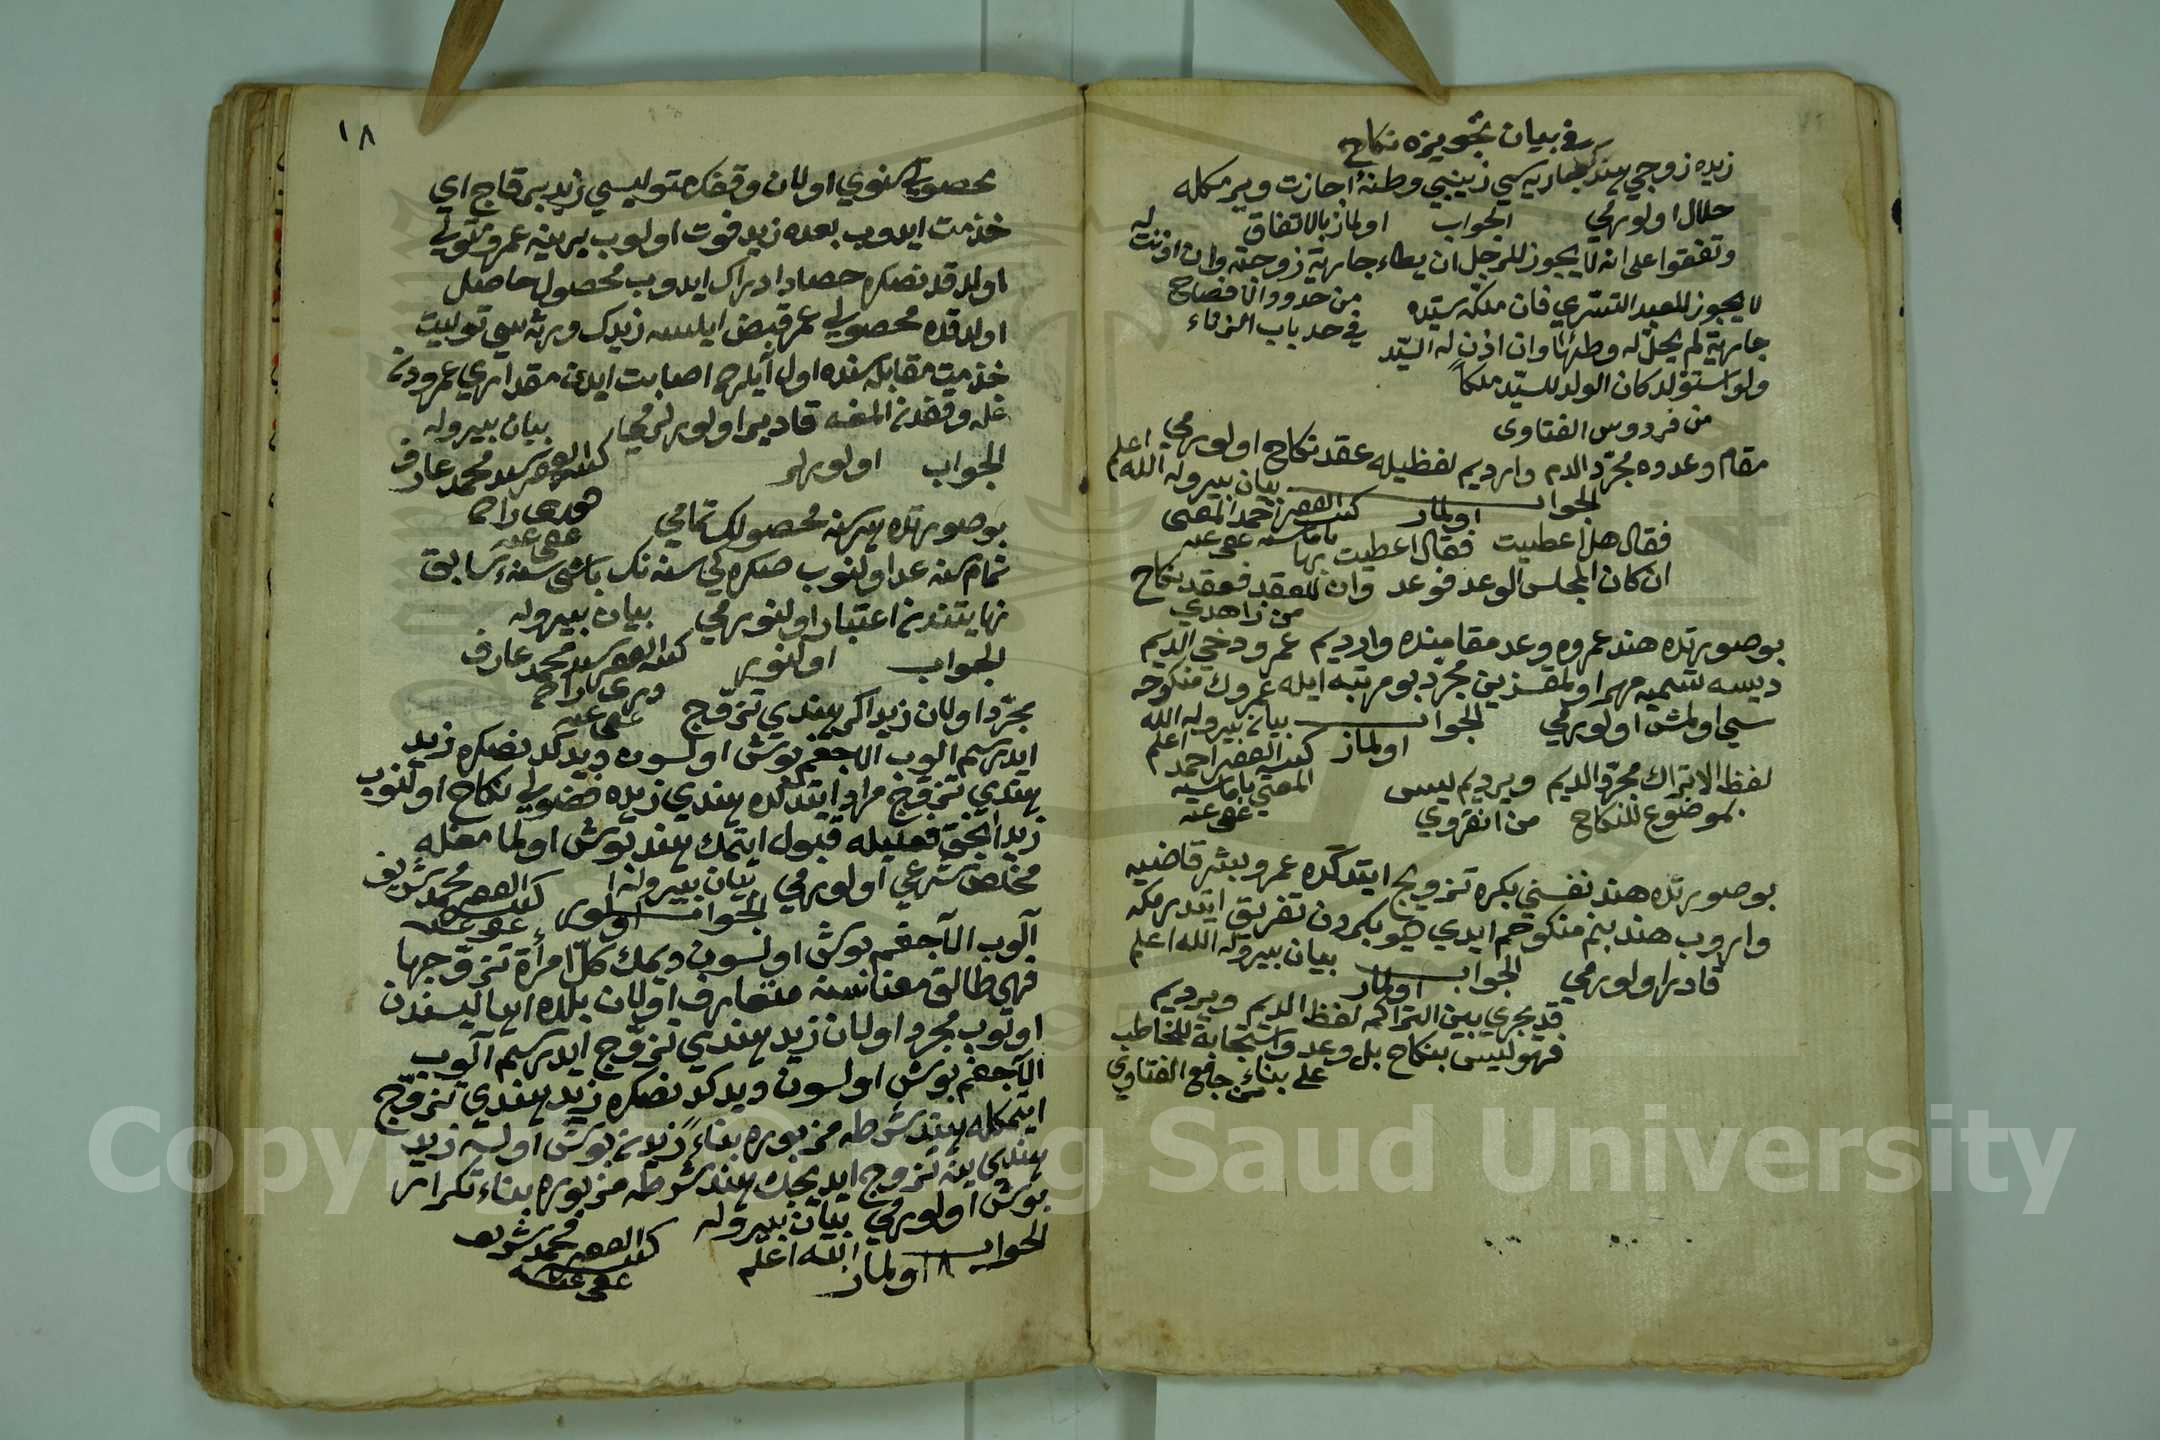 في بيان تجويزه نكاح
زيده زوجي هند جاريه سي زينبي وطئه اجازت ويرمكله
حلال اولورمي الجواب اولماز بالاتفاق
وتفقوا على انه لا يجوز للرجل ان يطاء جارية زوجته وان اذنت له
لا يجوز للعبد التسري فان ملكه سيده من حدود
جارية لم يحل له وطئها وان اذن له السيد في حد باب الزناء
ولو استولد كان الولد للسيد ملكا
من فردوس الفتاوى
مقام وعدده مجرد الدم وارديم لفظيله عقد نكاح اولورمي
الجواب اولماز بيان بيروله الله اعلم
كتبه الفقير احمد المفتى باماسيه عفى عنه
فقال هل اعطيت فقال اعطيت
ان كان المجلس للوعد فوعد وان للعقد فعقد نكاح
من زاهدي
بوصورتده هند عمروه وعد مقامنده وارديم عمرو دخي الديم
ديسه تسميه مهر اولمقسزين مجرد بو مرتبه ايله عمروك منكوحه
سي اولمش اولورمي الجواب اولماز بيان بيروله الله اعلم
كتبه الفقير احمد المفتي باماسيه عفى عنه
لفظ الاتراك مجرد الديم ويرديم ليس
بموضوع للنكاح من انقروي
بوصورتده هند نفسني بكره تزويج ايتدكده عمرو بشر قاضيه
واروب هند بنم منكوحم ايدي ديو بكردن تفريق ايتدرمكه
قادر اولورمي الجواب اولماز بيان بيروله الله اعلم
قد يجري بين التراكمه لفظ الديم ويرديم
فهو ليس بنكاح بل وعد واستجابة للمخاطب
على بناء من جامع الفتاوى
١٨
محصولي سنوي اولان وقفك متوليسي زيد بر قاج اي
خذمت ايدوب بعده زيد فوت اولوب يرينه عمرو متولي
اولدقدنصكره حصاد ادراك ايدوب محصول حاصل
اولدقده محصولي عمرو قبض ايلسه زيدك ورثه سي توليت
خذمت مقابله سنده اول آيلره اصابت ايدن مقداري عمرودن
غله وقفدن المغه قادر اولورلرمي بيان بيروله
الجواب اولورلر
كتبه الفقير سيد محمد عارف
عفى عنه
بوصورتده هر سنه محصولك تمامي
تمام سنه عد اولنوب صكره كي سنه نك باشي سنه سابق
نهايتندن اعتبار اولنورمي بيان بيروله
الجواب اولنور
كتبه الفقير سيد محمد عارف
عفى عنه
مجرد اولان زيد اكر هندي تزوج
ايدرسم الوب الاجغم بوش اولسون ديدكدنصكره زيد
هندي تزوج مراد ايتدكده هندي زيده فضولي نكاح اولنوب
زيد انجق فعليله قبول ايتمك هند بوش اولمامغله
مخلص شرعي اولورمي بيان بيروله
الجواب اولور كتبه الفقير محمد شريف عفى عنه
آلوب الاجغم بوش اولسون ديمك كل امرأة تزوجها
فهي طالق معناسنه متعارف اولان بلده اهاليسندن
اولوب مجرد اولان زيد هندي تزوج ايدرسم آلوب
الاجغم بوش اولسون ديدكدنصكره زيد هندي تزوج
ايتمكله هند شرطه مزبوره بناء زيدن بوش اولسه زيد
هندي ينه تزوج ايديجك هند شرطه مزبوره بناء تكرار
بوش اولورمي بيان بيروله
الجواب اولماز الله اعلم
كتبه الفقير محمد شريف
عفى عنه
Copyright © King Saud University